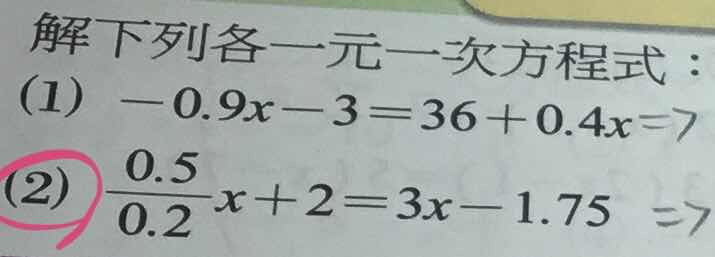 解下列各一元一次方程式：
(1) －0.9x－3＝36＋0.4x=>
(2) 0.5/0.2 x＋2＝3x－1.75 =>